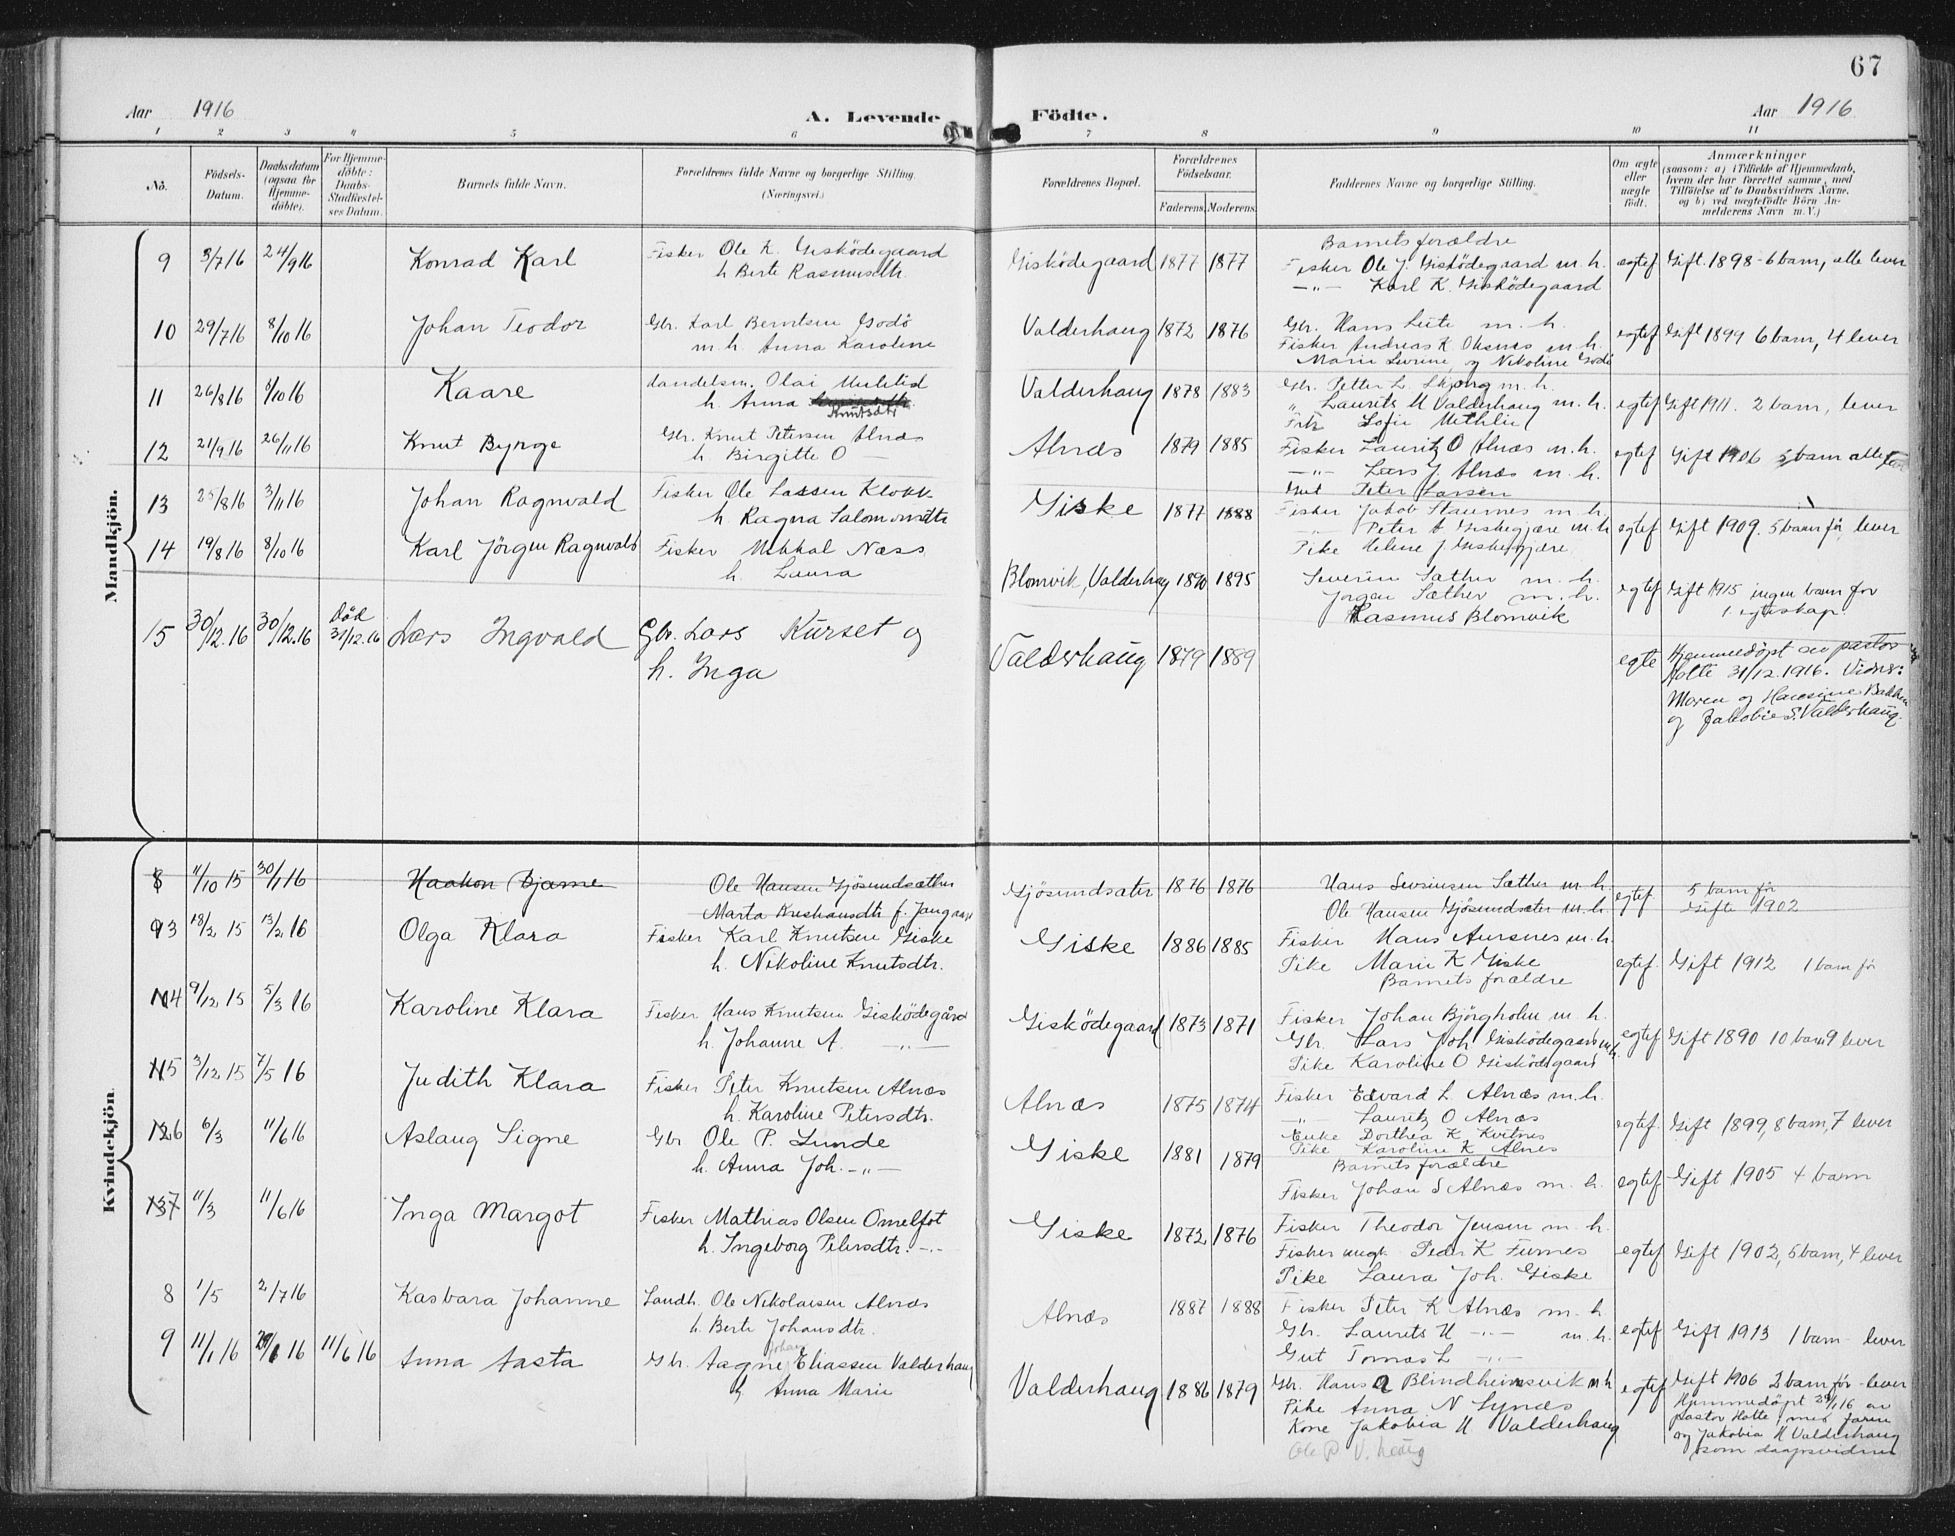 67
Aar 1916
A. Levende
Födte.
Aar 1916
1 2 3 4 5 6 7 8 9 10 11
No.
Födsels-Datum.
Daabsdatum (ogsaa for Hjemme-döbte).
For Hjemme-döbte: Daabs-Stadfæstel-ses Datum.
Barnets fulde Navn.
Forældrenes fulde Navne og borgerlige Stilling. (Næringsvei.)
Forældrenes Bopæl.
Forældrenes Födselsaar.
Faderens. Moderens.
Faddernes Navne og borgerlige Stilling.
Om ægte eller uægte födt.
Anmærkninger
(saasom: a) i Tilfælde af Hjemmedaab, hvem der har forrettet samme, med Tilföielse af to Daabsvidners Navne, og b) ved uægtefödte Börn An-melderens Navn m. V.)
Mandkjön.
9 3/7 16 24/9 16 Konrad Karl Fisker Ole K. Gisködegaard
h Berte Rasmusdtr. Gisködegaard 1877 1877 Barnets forældre
Fisker Ole J. Gisködegaard m. h.
—"— Karl K. Gisködegaard
egtef Gift. 1898 - 6 barn, alle lever
10 29/7 16 8/10 16 Johan Teodor Gbr. Karl Berntsen Godö
m. h. Anna Karoline Valderhaug 1872 1876 Gbr. Hans Leite m. h.
Fisker Andreas K. Oksnes m. h.
Marie Severine og Nikoline Godö
egtef Gift 1899 6 barn, 4 lever
11 26/8 16 8/10 16 Kaare Handelsm. Olai
h. Anna Knutsdtr Valderhaug 1878 1883 Gbr. Petter L. Skjong m. h.
" Laurits M Valderhaug m. h.
Frk Sofie
egtef Gift 1911. 2 barn, lever
12 21/9 16 26/11 16 Knut Byrge Gbr. Knut Petersen Alnæs
h. Birgitte O — Alnæs 1879 1885 Fisker Lauritz O Alnæs m. h.
—"— Lars J. Alnæs m. h.
Gut Peter Larsen
egtef Gift 1906 5 barn alle lever
13 25/8 16 3/11 16 Johan Ragnvald Fisker Ole Lassen Klokk
h. Ragna Salomonsdtr Giske 1877 1888 Fisker Jakob Staurnes m. h.
Peter A Giskegjære m. h
Pike Heline J. Giskegjære
egtef Gift 1909. 5 barn för, lever
14 19/8 16 8/10 16 Karl Jörgen Ragnvald Fisker Mikkal Næss
h. Laura Blomvik, Valderhaug 1890 1895 Severin Sæther m. h.
Jörgen Sæther m. h.
Rasmus Blomvik
egtef Gift 1915 ingen barn för
i egteskap.
15 30/12.16 30/12.16 Död 31/12.16 Lars Ingvald Gbr. Lars Kurset og
h. Inga Valderhaug 1879 1889 egte
Hjemmedöpt av pastor
Holte 31/12.1916. Vidner:
Maren og Hansine Bakken
og Jakobie S. Valderhaug.
Kvindekjön.
8 11/10 15 30/1 16 Haakon Bjarne Ole Hansen Gjösundsæther
Marta f. Gjösundsæter 1876 1876 Hans Sevrinsen Sæther m. h.
Ole Hansen Gjösundsæter m. h.
egtef. 5 barn för
Gifte 1902
3 18/2 15 13/2 16 Olga Klara Fisker Karl Knutsen Giske
h. Nikoline Knutsdtr. Giske 1886 1885 Fisker Hans Aursnes m. h.
Pike Marie K Giske
Barnets forældre
egtef. Gift 1912 1 barn för
4 9/12 15 5/3 16 Karoline Klara Fisker Hans Knutsen Gisködegård
h. Johanne A. —"— Gisködegaard 1873 1871 Fisker Johan Björgholm m. h.
Gbr. Lars Joh. Gisködegaard m. h.
Pike Karoline O Gisködegaard
egtef Gift 1890 10 barn 9 lever
5 3/12 15 7/5 16 Judith Klara Fisker Peter Knutsen Alnæs
h. Karoline Petersdtr. Alnæs 1875 1874 Fisker Edvard L. Alnæs m. h.
—"— Lauritz O Alnæs
Enke Dorthea K. Kvitnes
Pike Karoline K Alnes
egtef. Gift 1899, 8 barn, 7 lever
6 6/3 11/6 16 Aslaug Signe Gbr Ole P. Lunde
h. Anna Joh. —"— Giske 1881 1879 Barnets forældre
Fisker Johan S Alnæs m. h.
egtef Gift 1905 4 barn
7 11/3 11/6 16 Inga Margot Fisker Mathias Olsen Omelfot
h. Ingeborg Petersdtr. —"— Giske 1872 1876 Fisker Theodor Jensen m. h.
Fisker ungk. Peder K Furnes
Pike Laura Joh. Giske
egtef Gift 1902, 5 barn, 4 lever
8 1/5 2/7 16 Kasbara Johanne Landh. Ole Nikolaisen Alnæs
h. Berte Johansdtr. Alnæs 1887 1888 Fisker Peter K Alnæs m. h.
Gbr. Laurits H —"— m. h.
Gut Tomas L —"—
egtef Gift 1913 1 barn - lever
9 11/1 16 29/1 16 11/6 16 Anna Aasta Gbr. Aagne Johan Eliassen Valderhaug
h. Anna Marie Valderhaug 1886 1879 Gbr. Hans A Blindheimsvik m h
Pike Anna N Synæs
Kone Jakobia H Valderhaug
Ole P V. haug
egtef Gift 1906 2 barn för - lever
Hjemmedöpt 29/1 16 av
pastor Holte, med
og Jakobia H Valderhaug
som daapsvidner